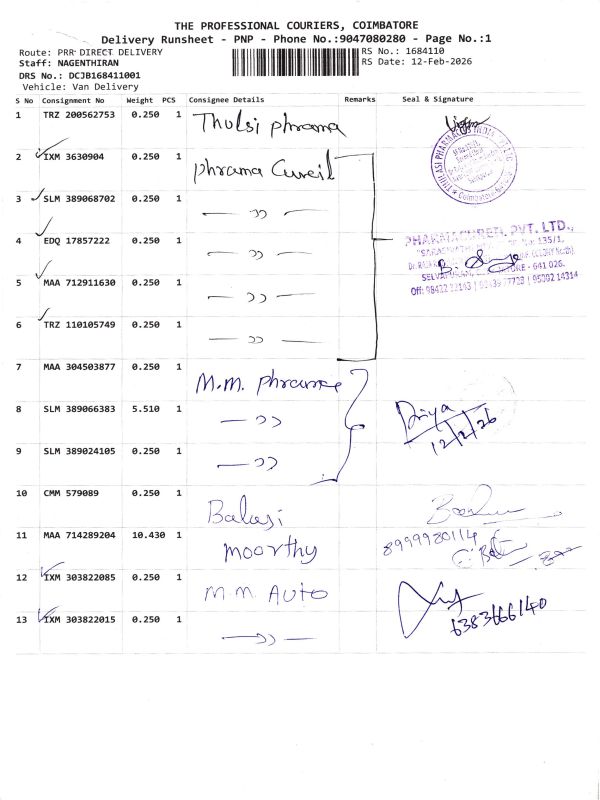 THE PROFESSIONAL COURIERS, COIMBATORE
Delivery Runsheet - PNP - Phone No.:9047080280 - Page No.:1
Route: PRR DIRECT DELIVERY
RS No.: 1684110
Staff: NAGENTHIRAN
RS Date: 12-Feb-2026
DRS No.: DCJB168411001
Vehicle: Van Delivery
S No Consignment No Weight PCS Consignee Details Remarks Seal & Signature
1 TRZ 200562753 0.250 1 Thulsi phrama
2 IXM 3630904 0.250 1 phrama Cureil
3 SLM 389068702 0.250 1 — ,, —
4 EDQ 17857222 0.250 1 — ,, —
PHARMACUREIL PVT. LTD.,
5 MAA 712911630 0.250 1 — ,, —
6 TRZ 110105749 0.250 1 — ,, —
7 MAA 304503877 0.250 1 M.M. phramce
8 SLM 389066383 5.510 1 — ,,
Priya
12/2/26
9 SLM 389024105 0.250 1 — ,,
10 CMM 579089 0.250 1 Balaji
11 MAA 714289204 10.430 1 moorthy 8999980114
12 IXM 303822085 0.250 1 M.M. AUTO
13 IXM 303822015 0.250 1 — ,, — 6383666140